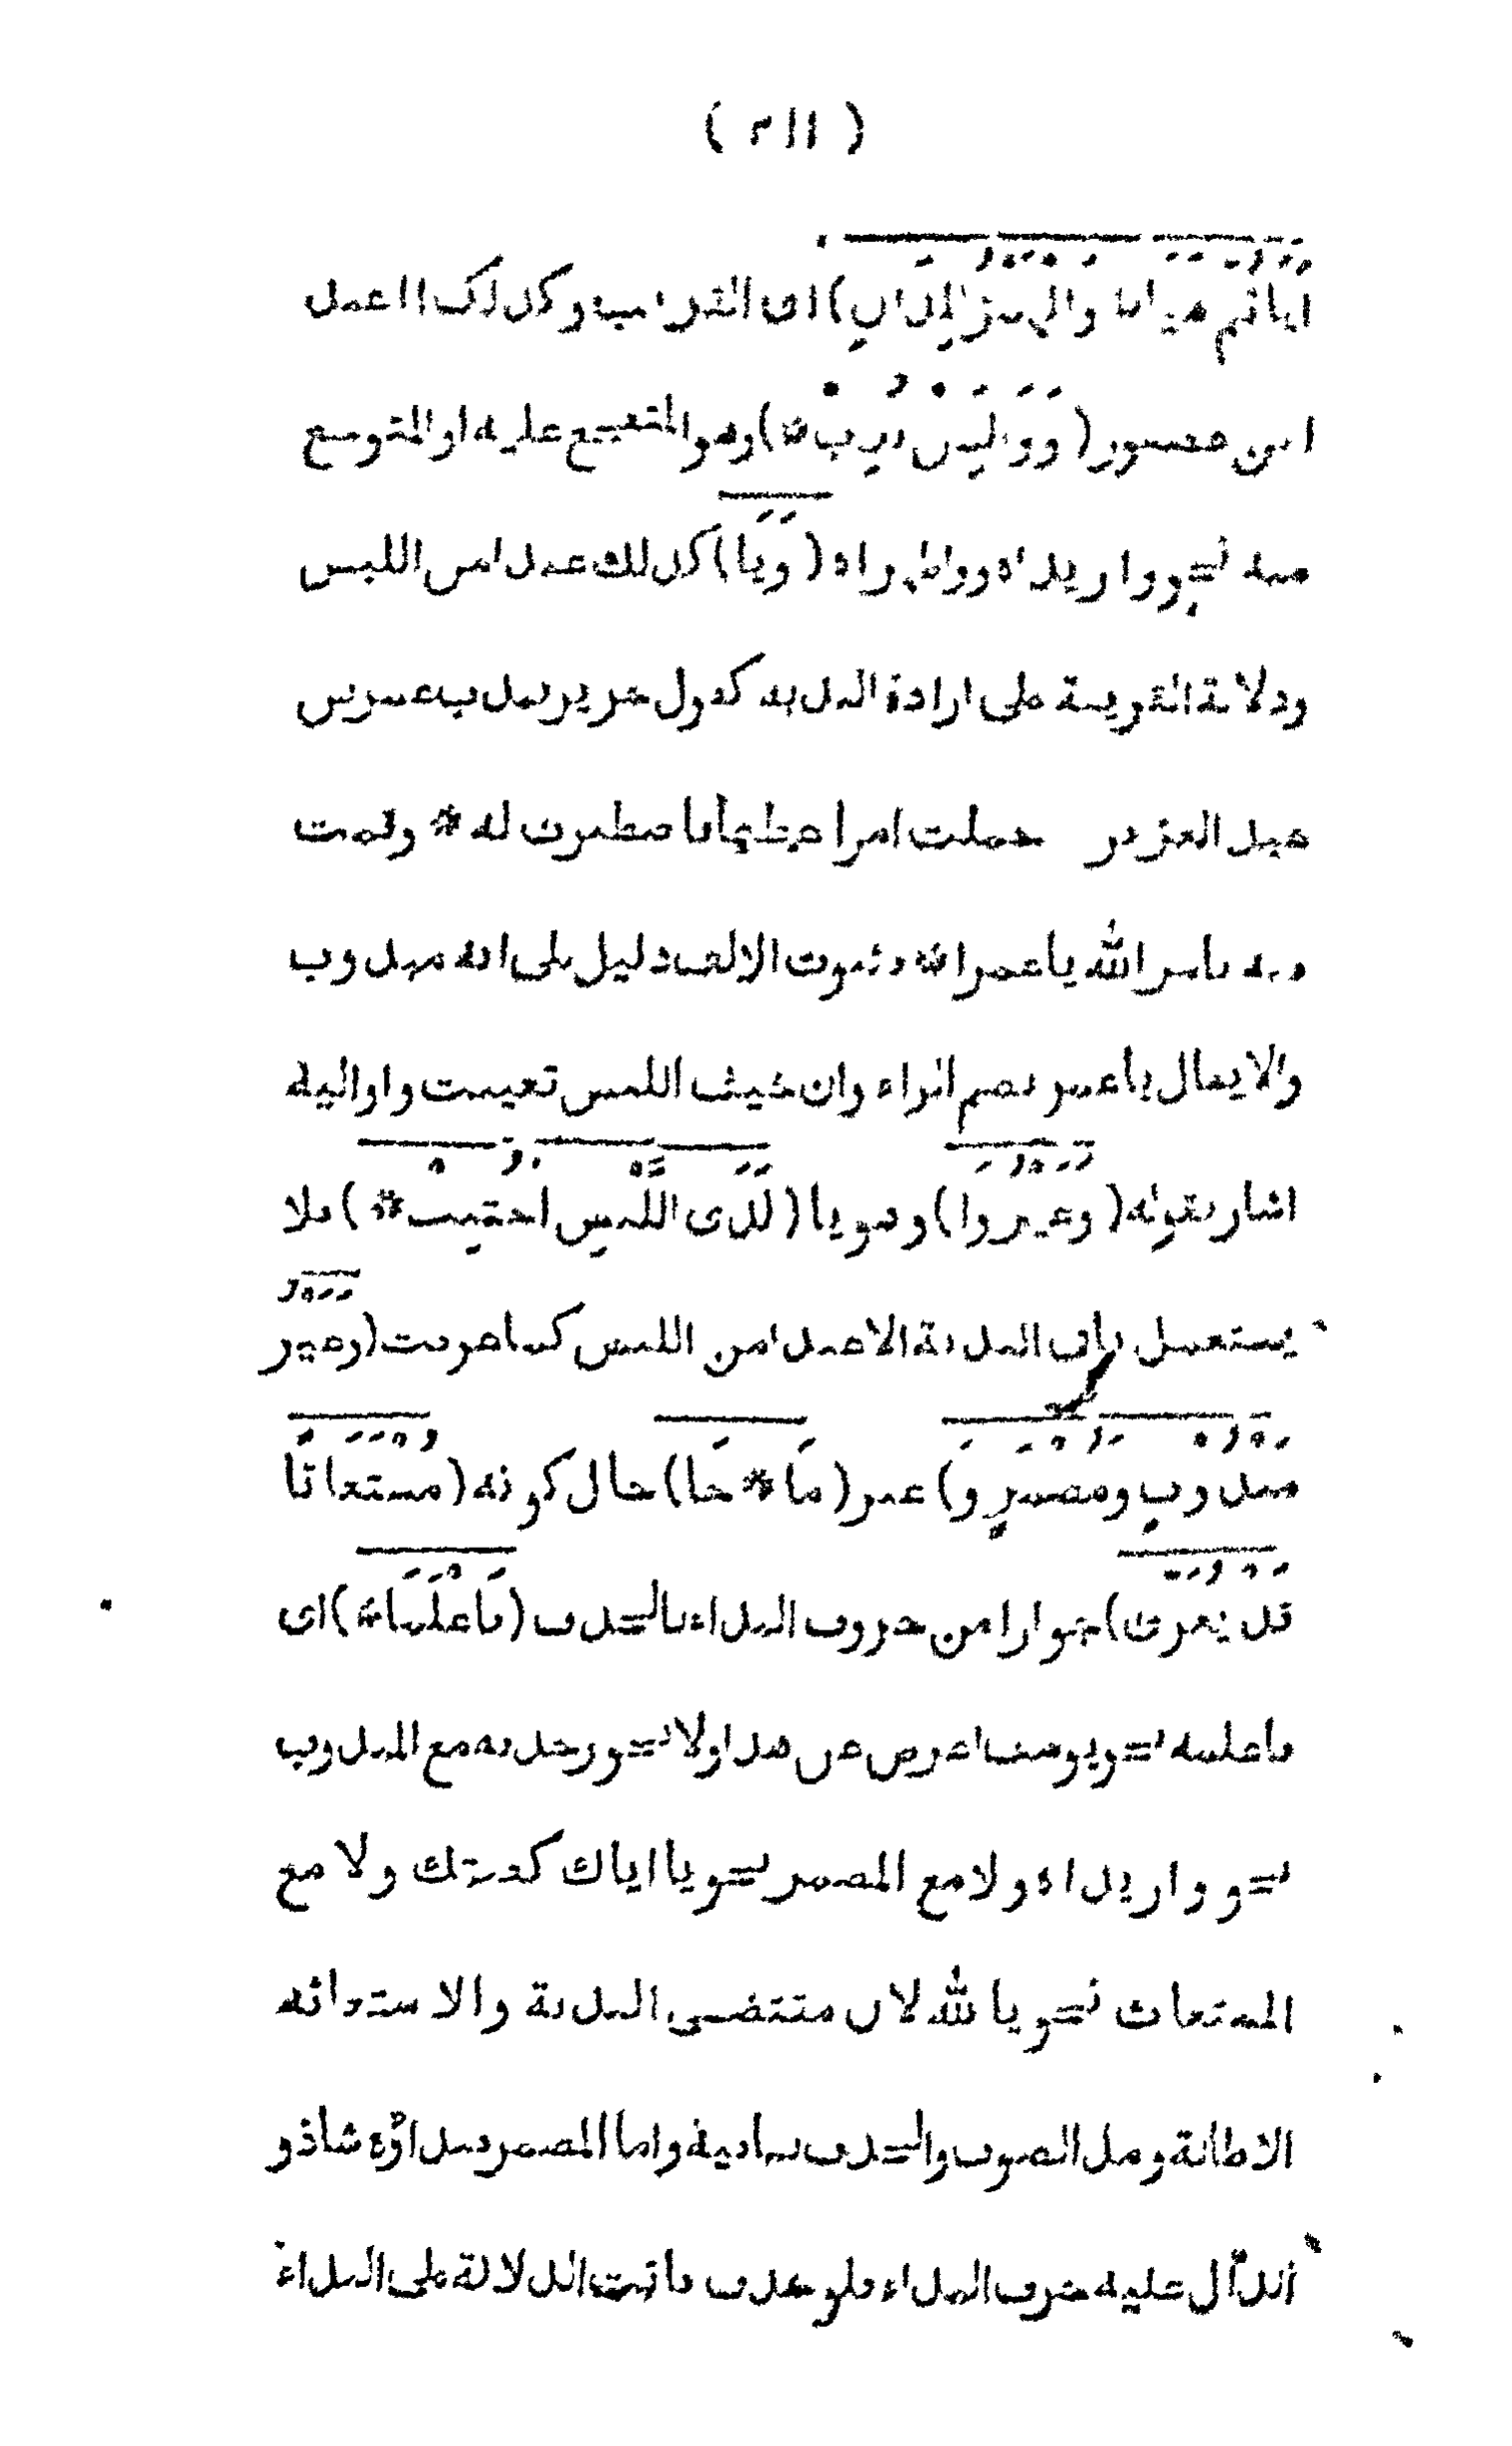 ( ٣١١ )
اى القريب وكذلك اعمل
ابن عصفور (وَوَا لِمَنْ نُدِبْ*) وهو المتفجع عليه او المتوجع
منه نحو وا زيداه وواظهراه (وَيَا) كذلك عند امن اللبس
ودلالة القرينة على ارادة الندبة كقول جرير يندب عمر بن
عبد العزيز حملت امرا عظيما فاصطبرت له * وقمت
فيه بامر الله يا عمرا * فثبوت الالف دليل على انه مندوب
والا يقال يا عمر بضم الراء وان خيف اللبس تعينت وا واليه
اشار بقوله (وغير وا) وهو يا (لَدَى اللَّبْسِ اجْتُنِبْ*) فلا
يستعمل يا فى الندبة الا عند امن اللبس كما عرفت (وغير
مندوبٍ ومضمرٍ و) غير (مَا* جَا) حال كونه (مستغاثًا
قد يعرى) جوازا من حروف النداء بالحذف (فَاعْلَمَا*) اى
فاعلمه نحو يوسف اعرض عن هذا ولا يجوز حذفه مع المندوب
نحو وا زيداه ولا مع المضمر نحو يا اياك كفيتك ولا مع
المستغاث نحو يا لله لان مقتضى الندبة والاستغاثه
الاطالة ومد الصوت والحذف ينافيه واما المضمر فنداؤه شاذ و
الدال عليه حرف النداء فلو حذف فاتت الدلالة على النداء